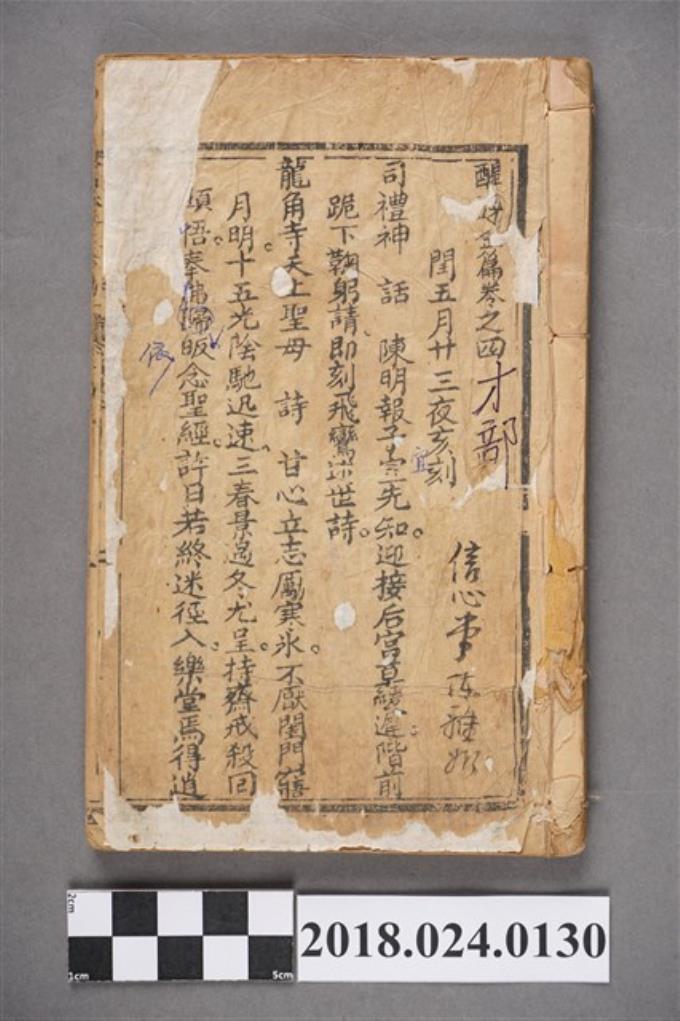 醒世全篇卷之四 才部
閏五月廿三夜亥刻
信心堂 陈雅
司禮神 話 陳明報子壹先知。迎接后宮草綾遲。階前
宜
跪下鞠躬請。即刻飛鸞述世詩。
龍角寺天上聖母 詩 甘心立志勵寒氷。不厭閨門寤
月明。十五光陰馳迅速。三春景過冬尤呈。持齋戒殺回
頭悟。奉佛歸皈念聖經。許日若終迷徑入。樂堂焉得逍
依
2cm
1cm
5cm
2018.024.0130